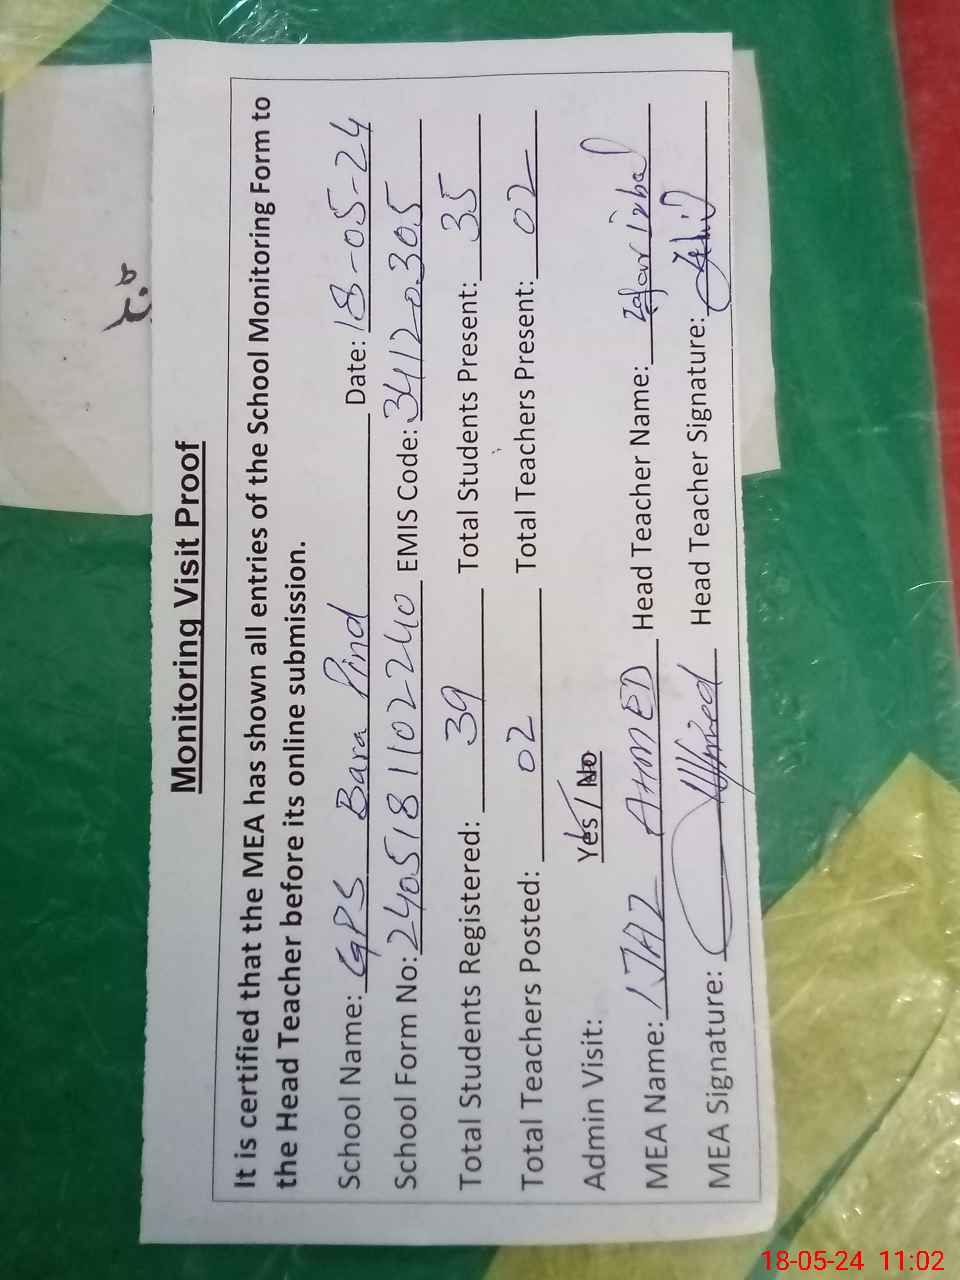 Monitoring Visit Proof
It is certified that the MEA has shown all entries of the School Monitoring Form to
the Head Teacher before its online submission.
School Name: GPS Bara Pind Date: 18-05-24
School Form No: 2405181102240 EMIS Code: 34120305
Total Students Registered: 39 Total Students Present: 35
Total Teachers Posted: 02 Total Teachers Present: 02
Admin Visit: Yes / No
MEA Name: IJAZ AHMED Head Teacher Name: Zafar iqbal
MEA Signature: Head Teacher Signature:
18-05-24 11:02